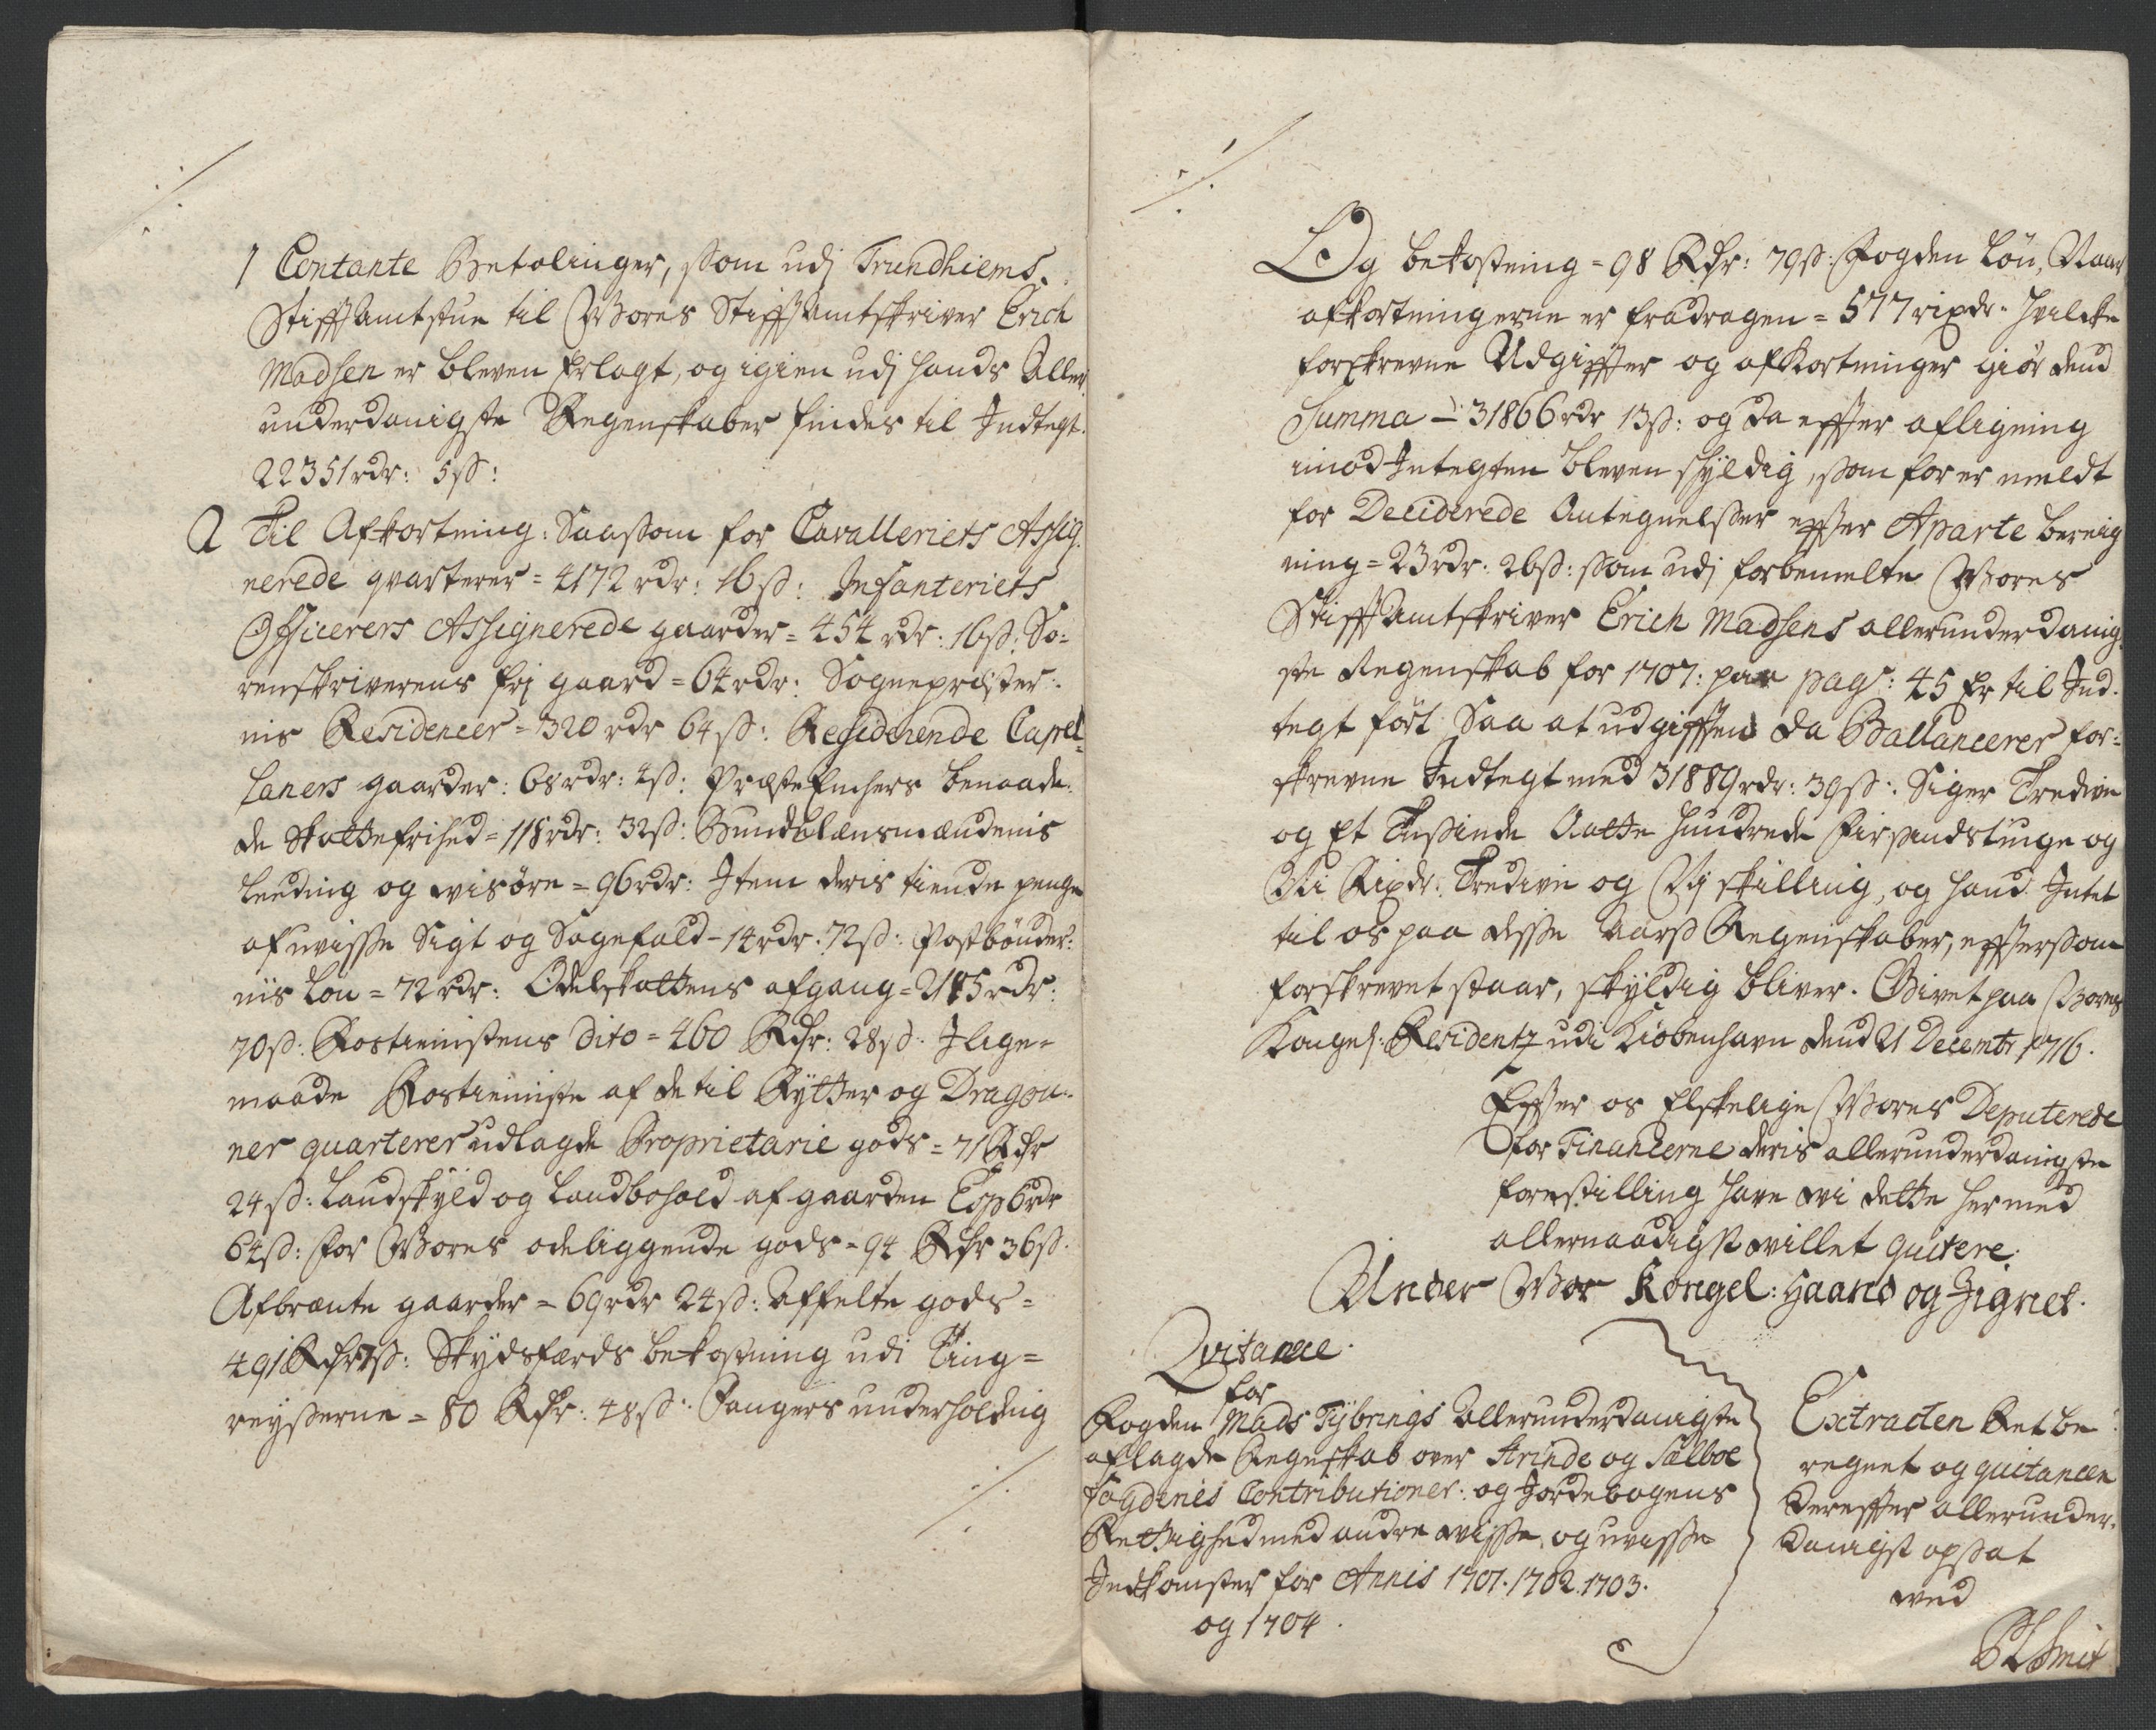 1 Contante Betalinger, som udj Trundhiems
Stifftamtstue til Wores Stifftamtskriver Erich
Madsen er bleven Erlagt, og igien udj hands Aller
underdanigste Regenskaber findes til Indtegt.
22351 rdr: 5 ß:
2 Til Afkortning: Saasom for Cavalleriets Assig-
nerede qvarterer = 4172 rdr: 16 ß: Infanteriets
Officerers Assignerede gaarder = 454 rdr: 16 ß: So=
renskriverens frj gaard = 64 rdr: Sognepræster=
nis Residencer = 320 rdr 64 ß: Residerende Capel=
laners gaarder: 68 rdr: 4 ß: Præste Enchers benaade=
de Skattefrihed = 118 rdr: 32 ß: Bundelænsmændenis
Leeding og wisøre = 96 rdr: Item deris tiende penge
af uvisse Sigt og Sagefald = 14 rdr: 72 ß: Postbønder=
nis Løn = 72 rdr: Odelskattens afgang = 2145 rdr:
70 ß: Rostienistens dito = 460 Rdr: 28 ß: Jlige=
maade Rostieniste af de til Rytter og Dragou=
ner quarterer udlagde Proprietarie gods = 71 Rdr
24 ß: Landskyld og Landbohold af gaarden Esp 6 rdr
64 ß: for Wores ødeliggende gods = 94 Rdr 36 ß:
Afbrænte gaarder = 69 rdr 24 ß: Affelte gods =
491 Rdr 7 ß: Skydsfærds bekostning udi Ting=
reyßerne = 80 Rdr: 48 ß: Fangers underholdnig
Og bekostning = 98 Rdr: 79 ß: Fogden Løn, Naar
afkortningerne er fradragen = 577 rixdr: hvilcke
forskrevne Udgiffter og afkortninger giør dend
Summa — 31866 rdr 13 ß: og da effter afligning
imod Integten bleven skyldig, som for er meldt
for Deciderede Antegnelser effter Aparte bereig
ning = 23 rdr: 26 ß: som udj forbemelte Wores
Stifftamtskriver Erich Madsens allerunderdanig
ste Regenskab for 1707: paa pag: 45 Er til Ind=
tegt ført Saa at udgifften da Ballancerer for=
skrevne Indtegt med 31889 rdr: 39 ß: Siger Tredive
og Et Tusinde Aatte hundrede Firsindstiuge og
Ni Rixdr: Tredive og Nj skilling, og hand Intet
til os paa disse Aars Regenskaber, effterßom
forskrevet staar, skyldig bliver. Givet paa Wores
Kongel: Residentz udi Kiøbenhavn dend 21 Decembr 1716.
Effter os Elskelige Wores Deputerede
for Financerne deris allerunderdanigste
forestilling have wi dette her med
allernaadigst willet quitere:
Under Wor Kongel: Haand og Zignet.
Qvitance
for
Fogden Mads Tybrings Allerunderdanigste
aflagde Regnskab over Strinde og Sælboe
fogderies Contributioner: og Jordebogens
Rettighed med andre wisse og uvisse
Indkomster for Annis 1701. 1702. 1703.
og 1704.
Extracten Ret be=
regnet og quitancen
dereffter allerunder=
danigst opsat
wed